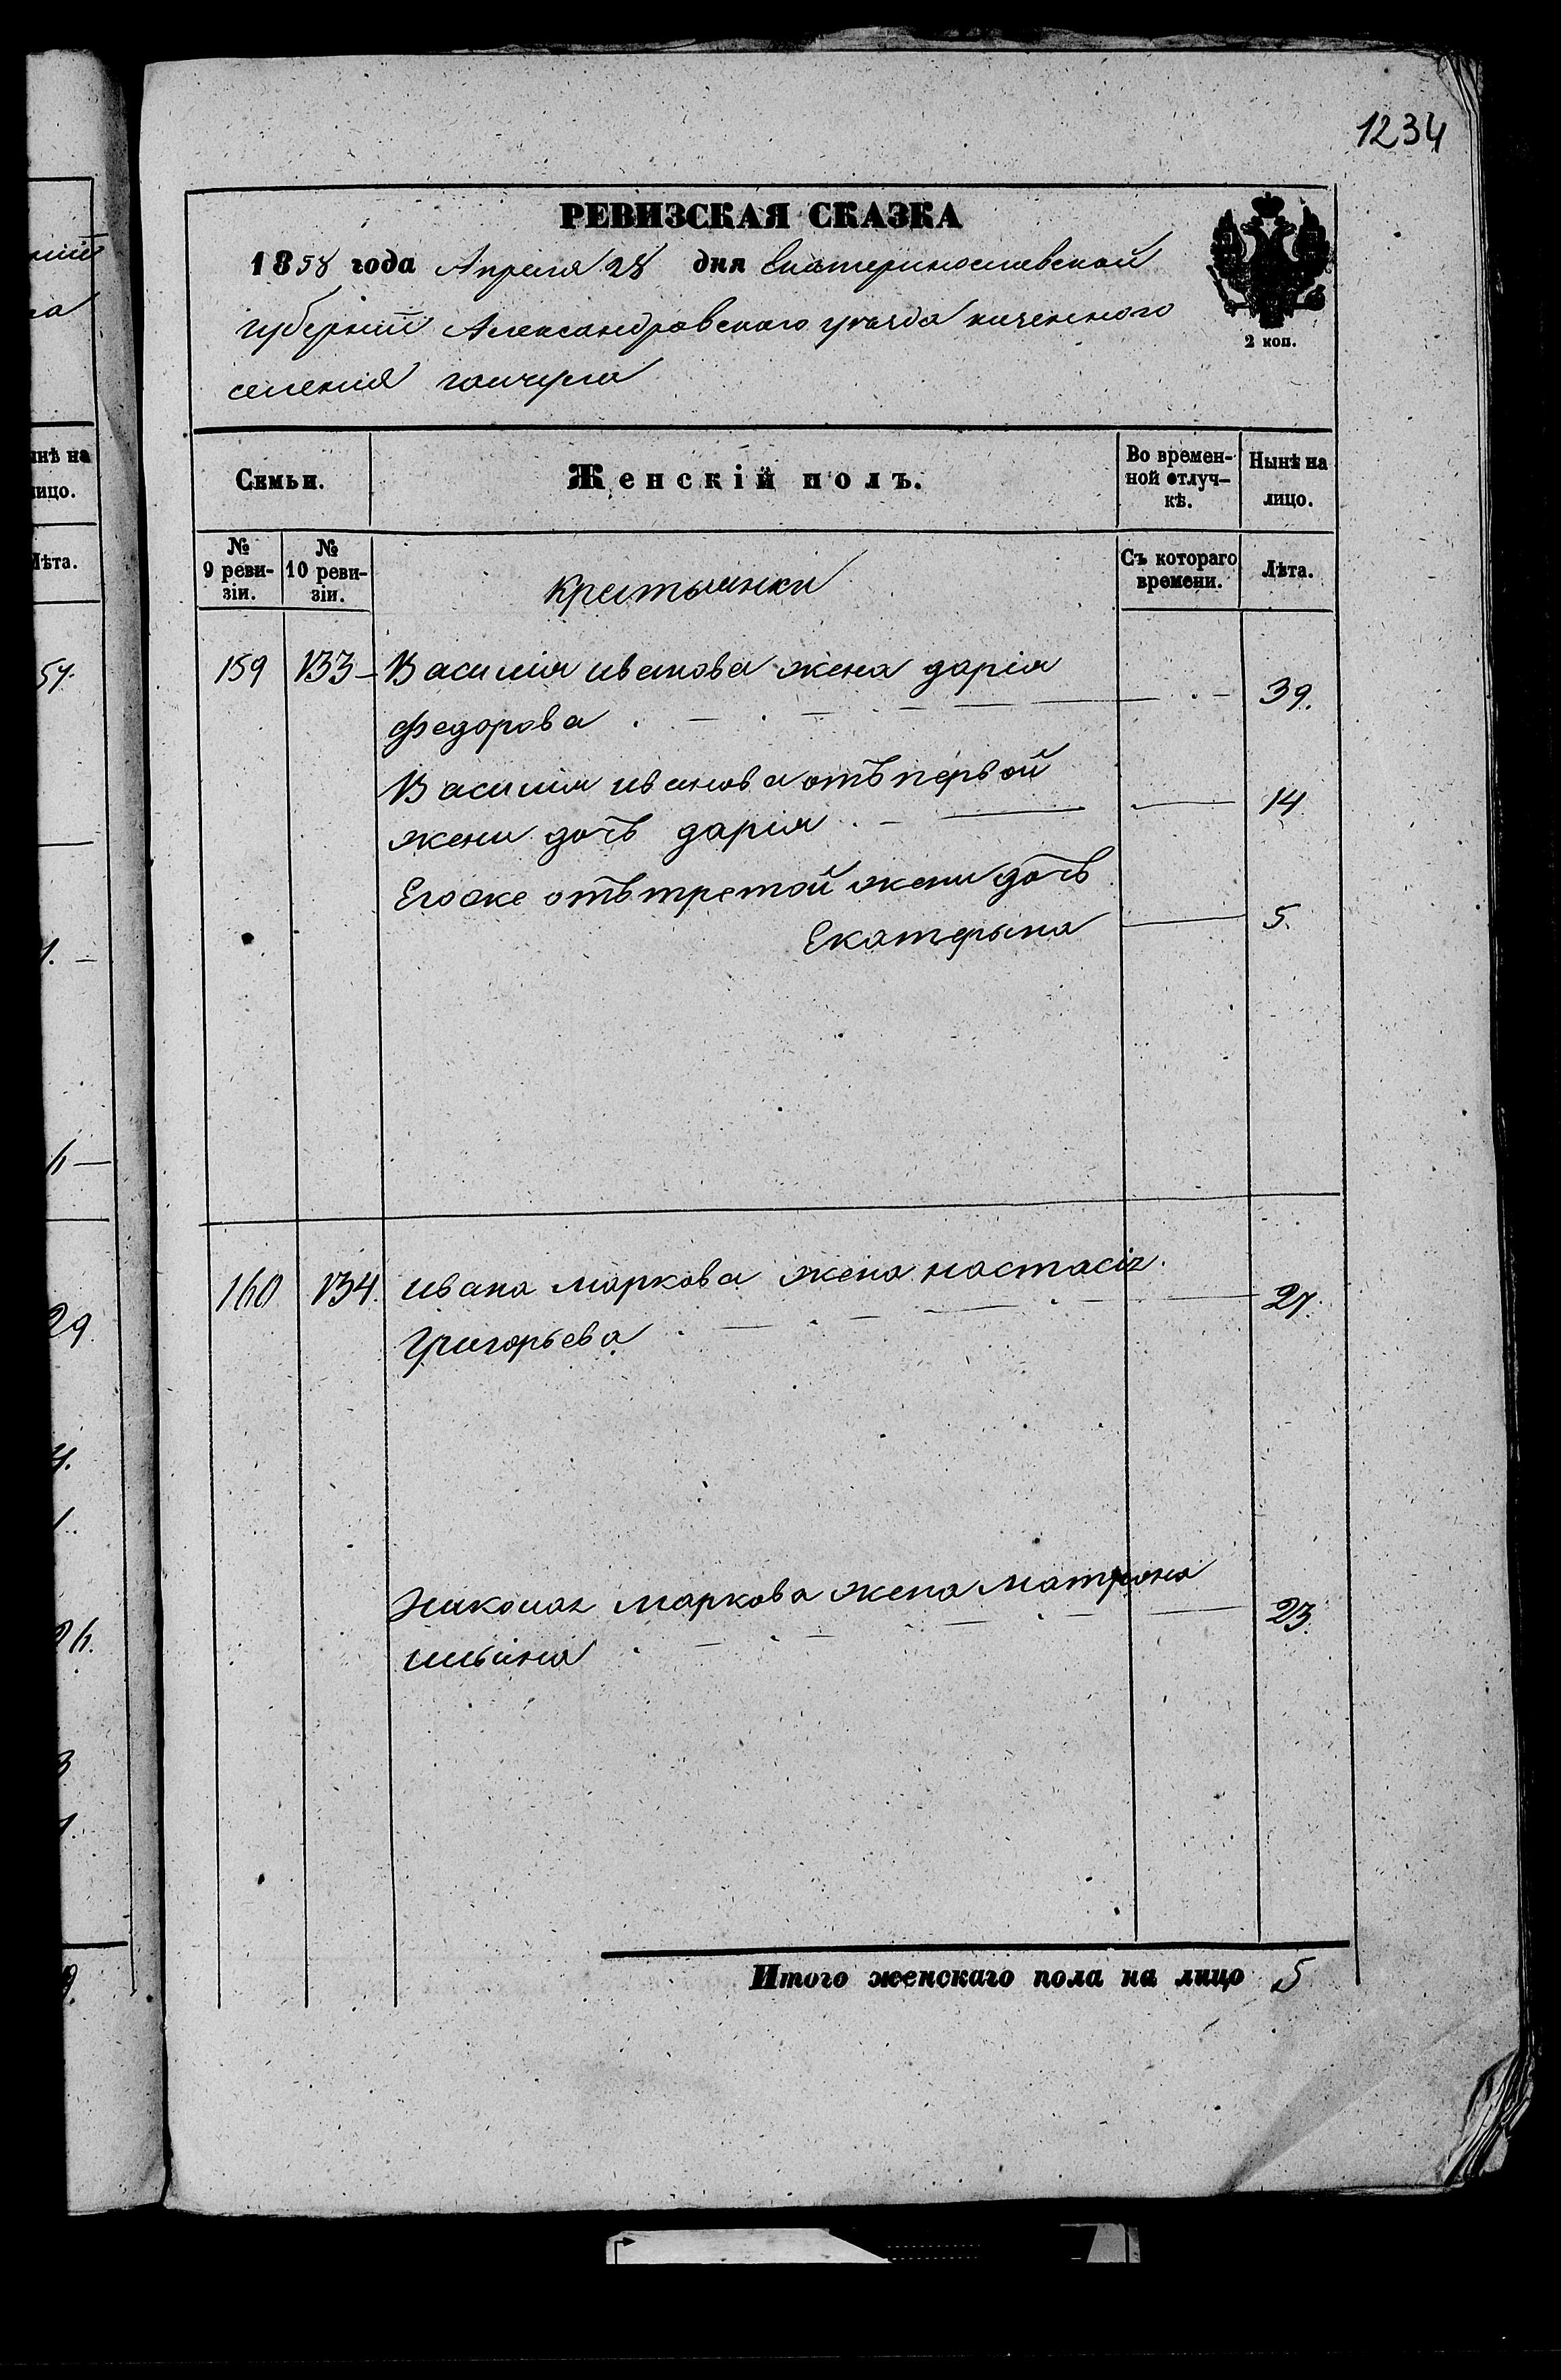 1234
РЕВИЗСКАЯ СКАЗКА
1858 года Апреля 28 дня Екатеринославской
губерніи Александровского уезда казенного
селенія гаичула
2 коп.
Семьи.
Женскій полъ.
Во времен-
ной отлуч-
кѣ.
Нынѣ на
лицо.
№
9 реви-
зіи.
№
10 реви-
зіи.
крестьянки
Съ котораго
времени.
Лѣта.
159 133 Василия иванова жена дарія
федорова 39.
Василия иванова отъ первой
жени дочь дарія 14
Егоже отъ третой жени дочь
Екатерына 5.
160 134. ивана маркова жена настасія
Григорьева 27.
Николая маркова жена матрона
ильина 23.
Итого женскаго пола на лицо 5
нѣ на
лицо.
Лѣта.
57.
29.
26.